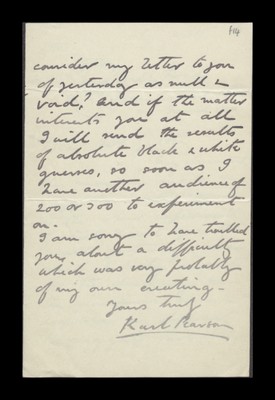 f14
consider my letter to you
of yesterday as null &
void? And if the matter
interests you at all
I will send the results
of absolute black & white
guesses, so soon as I
have another audience of
200 or 300 to experiment
on.
I am sorry to have troubled
you, about a difficulty
which was very probably
of my own creating.
Yours truly
Karl Pearson